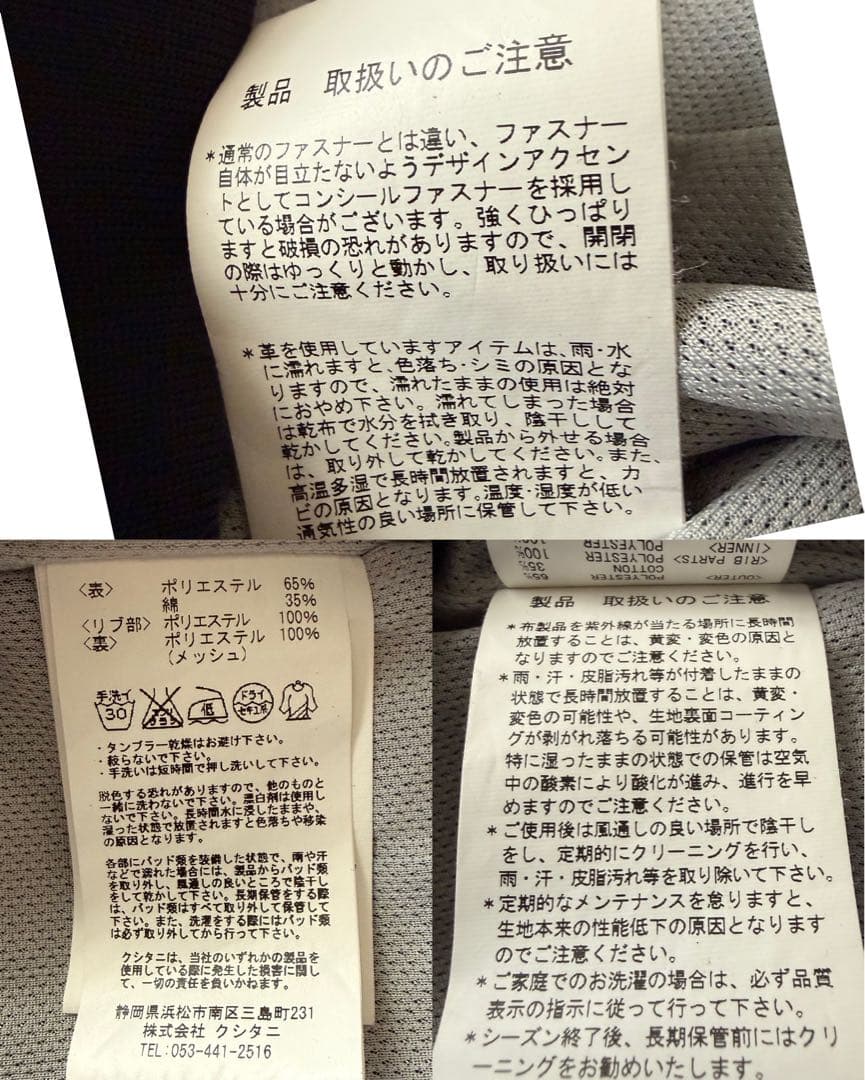 製品 取扱いのご注意
*通常のファスナーとは違い、ファスナー
自体が目立たないようデザインアクセン
トとしてコンシールファスナーを採用し
ている場合がございます。強くひっぱり
ますと破損の恐れがありますので、開閉
の際はゆっくりと動かし、取り扱いには
十分にご注意ください。
*革を使用していますアイテムは、雨・水
に濡れますと、色落ち・シミの原因とな
りますので、濡れたままの使用は絶対
におやめ下さい。濡れてしまった場合
は乾布で水分を拭き取り、陰干しして
乾かしてください。製品から外せる場合
は、取り外して乾かしてください。また、
高温多湿で長時間放置されますと、カ
ビの原因となります。温度・湿度が低い
通気性の良い場所に保管して下さい。
〈表〉 ポリエステル 65%
綿 35%
〈リブ部〉 ポリエステル 100%
〈裏〉 ポリエステル 100%
(メッシュ)
手洗イ 30 エンソサラシ 低 ドライ セキユ系
・タンブラー乾燥はお避け下さい。
・絞らないで下さい。
・手洗いは短時間で押し洗いして下さい。
脱色する恐れがありますので、他のものと
一緒に洗わないで下さい。漂白剤は使用し
ないで下さい。長時間水に浸したままや、
湿った状態で放置されますと色落ちや移染
の原因となります。
各部にパッド類を装備した状態で、雨や汗
などで濡れた場合には、製品からパッド類
を取り外し、風通しの良いところで陰干し
をして乾かして下さい。長期保管をする際
は、パッド類はすべて取り外して保管して
下さい。また、洗濯をする際にはパッド類
は必ず取り外してから行って下さい。
クシタニは、当社のいずれかの製品を
使用している際に発生した損害に関し
て、一切の責任を負いかねます。
静岡県浜松市南区三島町231
株式会社 クシタニ
TEL:053-441-2516
<OUTER> POLYESTER 65%
COTTON 35%
<RIB PARTS> POLYESTER 100%
<INNER> POLYESTER 100%
製品 取扱いのご注意
*布製品を紫外線が当たる場所に長時間
放置することは、黄変・変色の原因と
なりますのでご注意ください。
*雨・汗・皮脂汚れ等が付着したままの
状態で長時間放置することは、黄変・
変色の可能性や、生地裏面コーティン
グが剥がれ落ちる可能性があります。
特に湿ったままの状態での保管は空気
中の酸素により酸化が進み、進行を早
めますのでご注意ください。
*ご使用後は風通しの良い場所で陰干し
をし、定期的にクリーニングを行い、
雨・汗・皮脂汚れ等を取り除いて下さい。
*定期的なメンテナンスを怠りますと、
生地本来の性能低下の原因となります
のでご注意ください。
*ご家庭でのお洗濯の場合は、必ず品質
表示の指示に従って行って下さい。
*シーズン終了後、長期保管前にはクリ
ーニングをお勧めいたします。